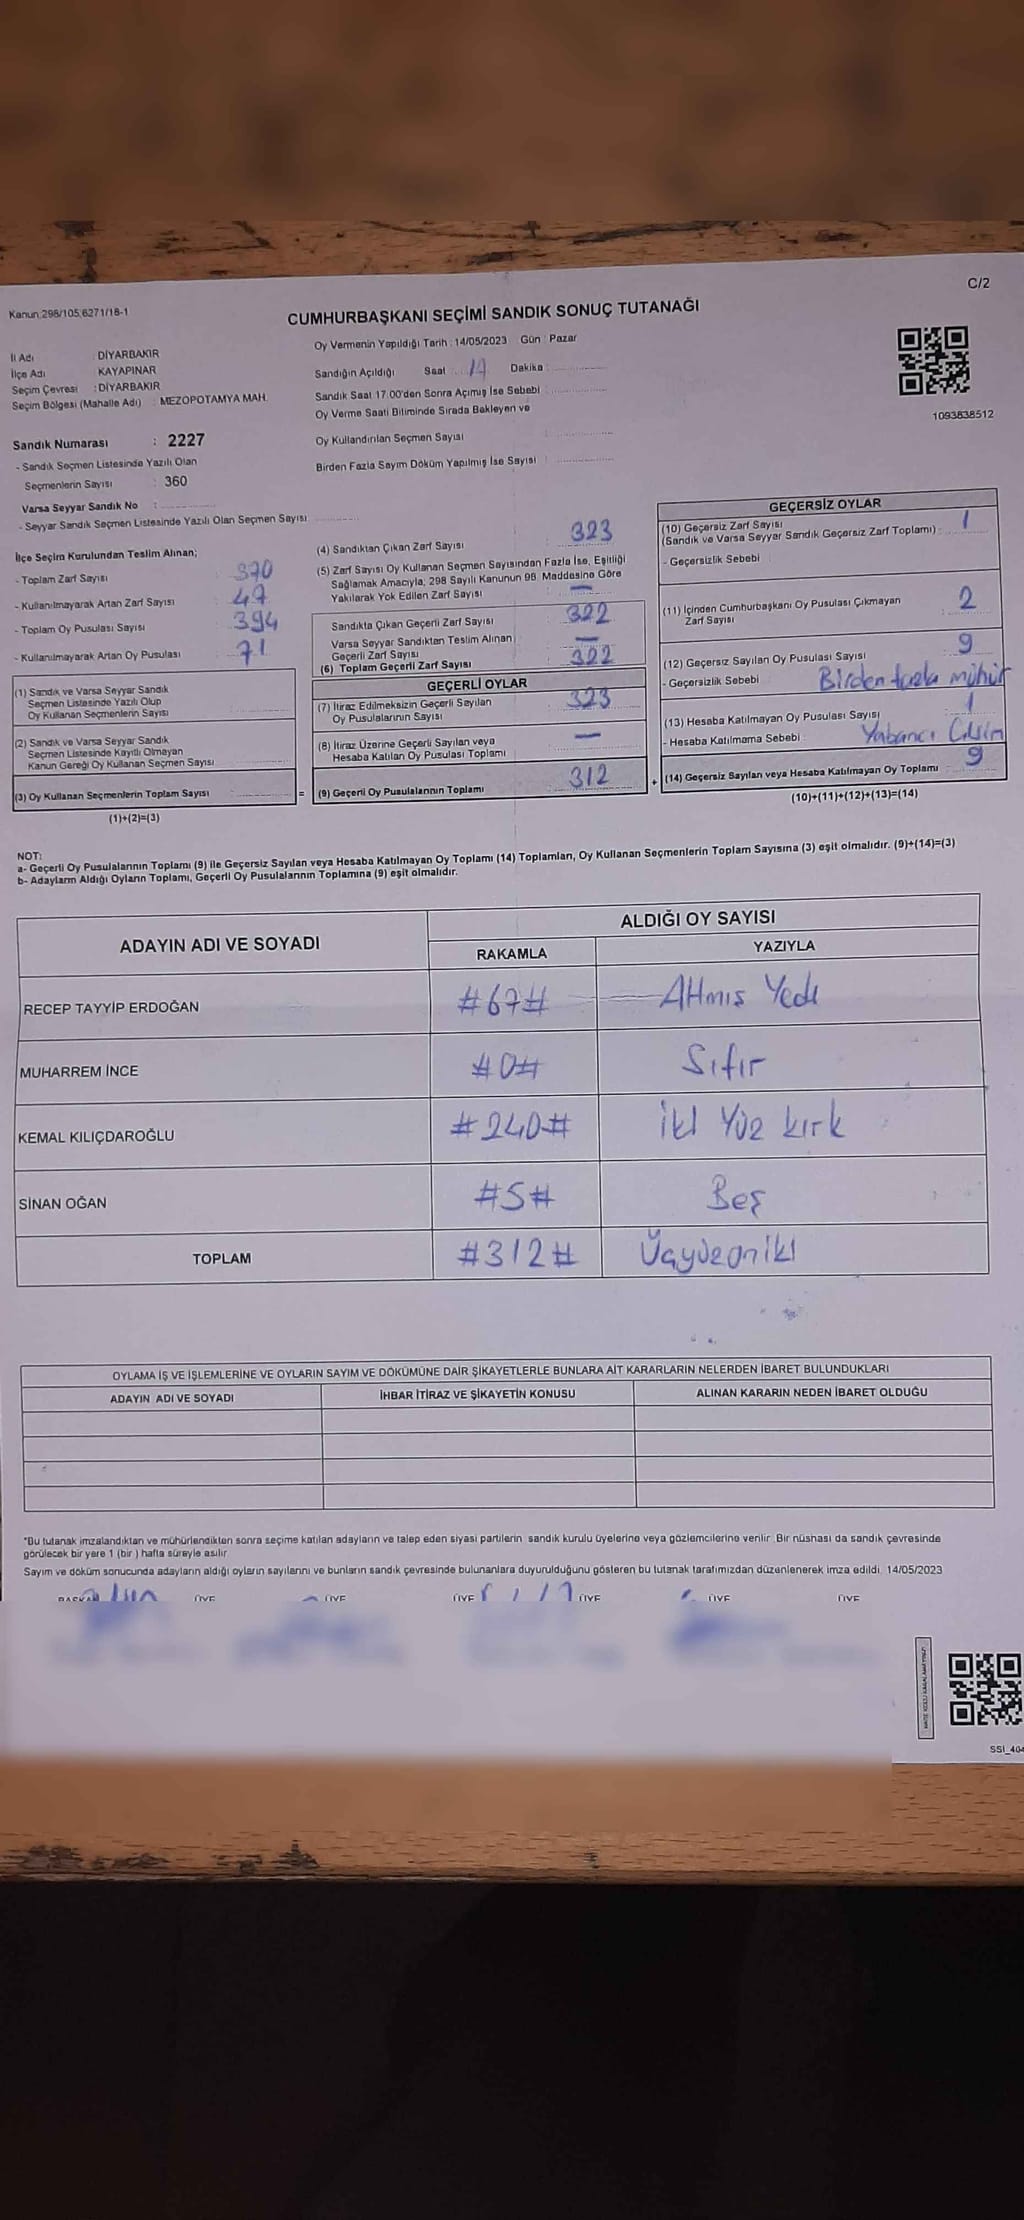 C/2
Kanun:298/105,6271/18-1
CUMHURBAŞKANI SEÇİMİ SANDIK SONUÇ TUTANAĞI
İl Adı : DİYARBAKIR
İlçe Adı : KAYAPINAR
Seçim Çevresi : DİYARBAKIR
Seçim Bölgesi (Mahalle Adı) : MEZOPOTAMYA MAH.
Oy Vermenin Yapıldığı Tarih : 14/05/2023 Gün : Pazar
Sandığın Açıldığı Saat : Dakika :
Sandık Saat 17:00'den Sonra Açımış İse Sebebi :
Oy Verme Saati Bitiminde Sırada Bekleyen ve
Oy Kullandırılan Seçmen Sayısı :
Birden Fazla Sayım Döküm Yapılmış İse Sayısı :
1093838512
Sandık Numarası : 2227
- Sandık Seçmen Listesinde Yazılı Olan
Seçmenlerin Sayısı : 360
Varsa Seyyar Sandık No :
- Seyyar Sandık Seçmen Listesinde Yazılı Olan Seçmen Sayısı
İlçe Seçim Kurulundan Teslim Alınan;
- Toplam Zarf Sayısı : 370
- Kullanılmayarak Artan Zarf Sayısı : 47
- Toplam Oy Pusulası Sayısı : 394
- Kullanılmayarak Artan Oy Pusulası : 71
(1) Sandık ve Varsa Seyyar Sandık
Seçmen Listesinde Yazılı Olup
Oy Kullanan Seçmenlerin Sayısı
(2) Sandık ve Varsa Seyyar Sandık
Seçmen Listesinde Kayıtlı Olmayan
Kanun Gereği Oy Kullanan Seçmen Sayısı
(3) Oy Kullanan Seçmenlerin Toplam Sayısı =
(1)+(2)=(3)
(4) Sandıktan Çıkan Zarf Sayısı : 323
(5) Zarf Sayısı Oy Kullanan Seçmen Sayısından Fazla İse, Eşitliği
Sağlamak Amacıyla, 298 Sayılı Kanunun 98. Maddesine Göre
Yakılarak Yok Edilen Zarf Sayısı : —
Sandıkta Çıkan Geçerli Zarf Sayısı : 322
Varsa Seyyar Sandıktan Teslim Alınan : —
Geçerli Zarf Sayısı
(6) Toplam Geçerli Zarf Sayısı : 322
GEÇERLİ OYLAR
(7) İtiraz Edilmeksizin Geçerli Sayılan : 323
Oy Pusulalarının Sayısı
(8) İtiraz Üzerine Geçerli Sayılan veya : —
Hesaba Katılan Oy Pusulası Toplamı
(9) Geçerli Oy Pusulalarının Toplamı : 312 +
GEÇERSİZ OYLAR
(10) Geçersiz Zarf Sayısı 1
(Sandık ve Varsa Seyyar Sandık Geçersiz Zarf Toplamı) :
- Geçersizlik Sebebi :
(11) İçinden Cumhurbaşkanı Oy Pusulası Çıkmayan : 2
Zarf Sayısı
(12) Geçersiz Sayılan Oy Pusulası Sayısı : 9
- Geçersizlik Sebebi : Birden fazla mühür
(13) Hesaba Katılmayan Oy Pusulası Sayısı : 1
- Hesaba Katılmama Sebebi : Yabancı Cisim
(14) Geçersiz Sayılan veya Hesaba Katılmayan Oy Toplamı : 9
(10)+(11)+(12)+(13)=(14)
NOT:
a- Geçerli Oy Pusulalarının Toplamı (9) ile Geçersiz Sayılan veya Hesaba Katılmayan Oy Toplamı (14) Toplamları, Oy Kullanan Seçmenlerin Toplam Sayısına (3) eşit olmalıdır. (9)+(14)=(3)
b- Adayların Aldığı Oyların Toplamı, Geçerli Oy Pusulalarının Toplamına (9) eşit olmalıdır.
ADAYIN ADI VE SOYADI
ALDIĞI OY SAYISI
RAKAMLA YAZIYLA
RECEP TAYYİP ERDOĞAN #67# Altmış Yedi
MUHARREM İNCE #0# Sıfır
KEMAL KILIÇDAROĞLU #240# İki Yüz kırk
SİNAN OĞAN #5# Beş
TOPLAM #312# Üçyüzoniki
OYLAMA İŞ VE İŞLEMLERİNE VE OYLARIN SAYIM VE DÖKÜMÜNE DAİR ŞİKAYETLERLE BUNLARA AİT KARARLARIN NELERDEN İBARET BULUNDUKLARI
ADAYIN ADI VE SOYADI İHBAR İTİRAZ VE ŞİKAYETİN KONUSU ALINAN KARARIN NEDEN İBARET OLDUĞU
*Bu tutanak imzalandıktan ve mühürlendikten sonra seçime katılan adayların ve talep eden siyasi partilerin sandık kurulu üyelerine veya gözlemcilerine verilir. Bir nüshası da sandık çevresinde
görülecek bir yere 1 (bir ) hafta süreyle asılır
Sayım ve döküm sonucunda adayların aldığı oyların sayılarını ve bunların sandık çevresinde bulunanlara duyurulduğunu gösteren bu tutanak tarafımızdan düzenlenerek imza edildi. 14/05/2023
BAŞKAN ÜYE ÜYE ÜYE ÜYE ÜYE ÜYE
SSI_404